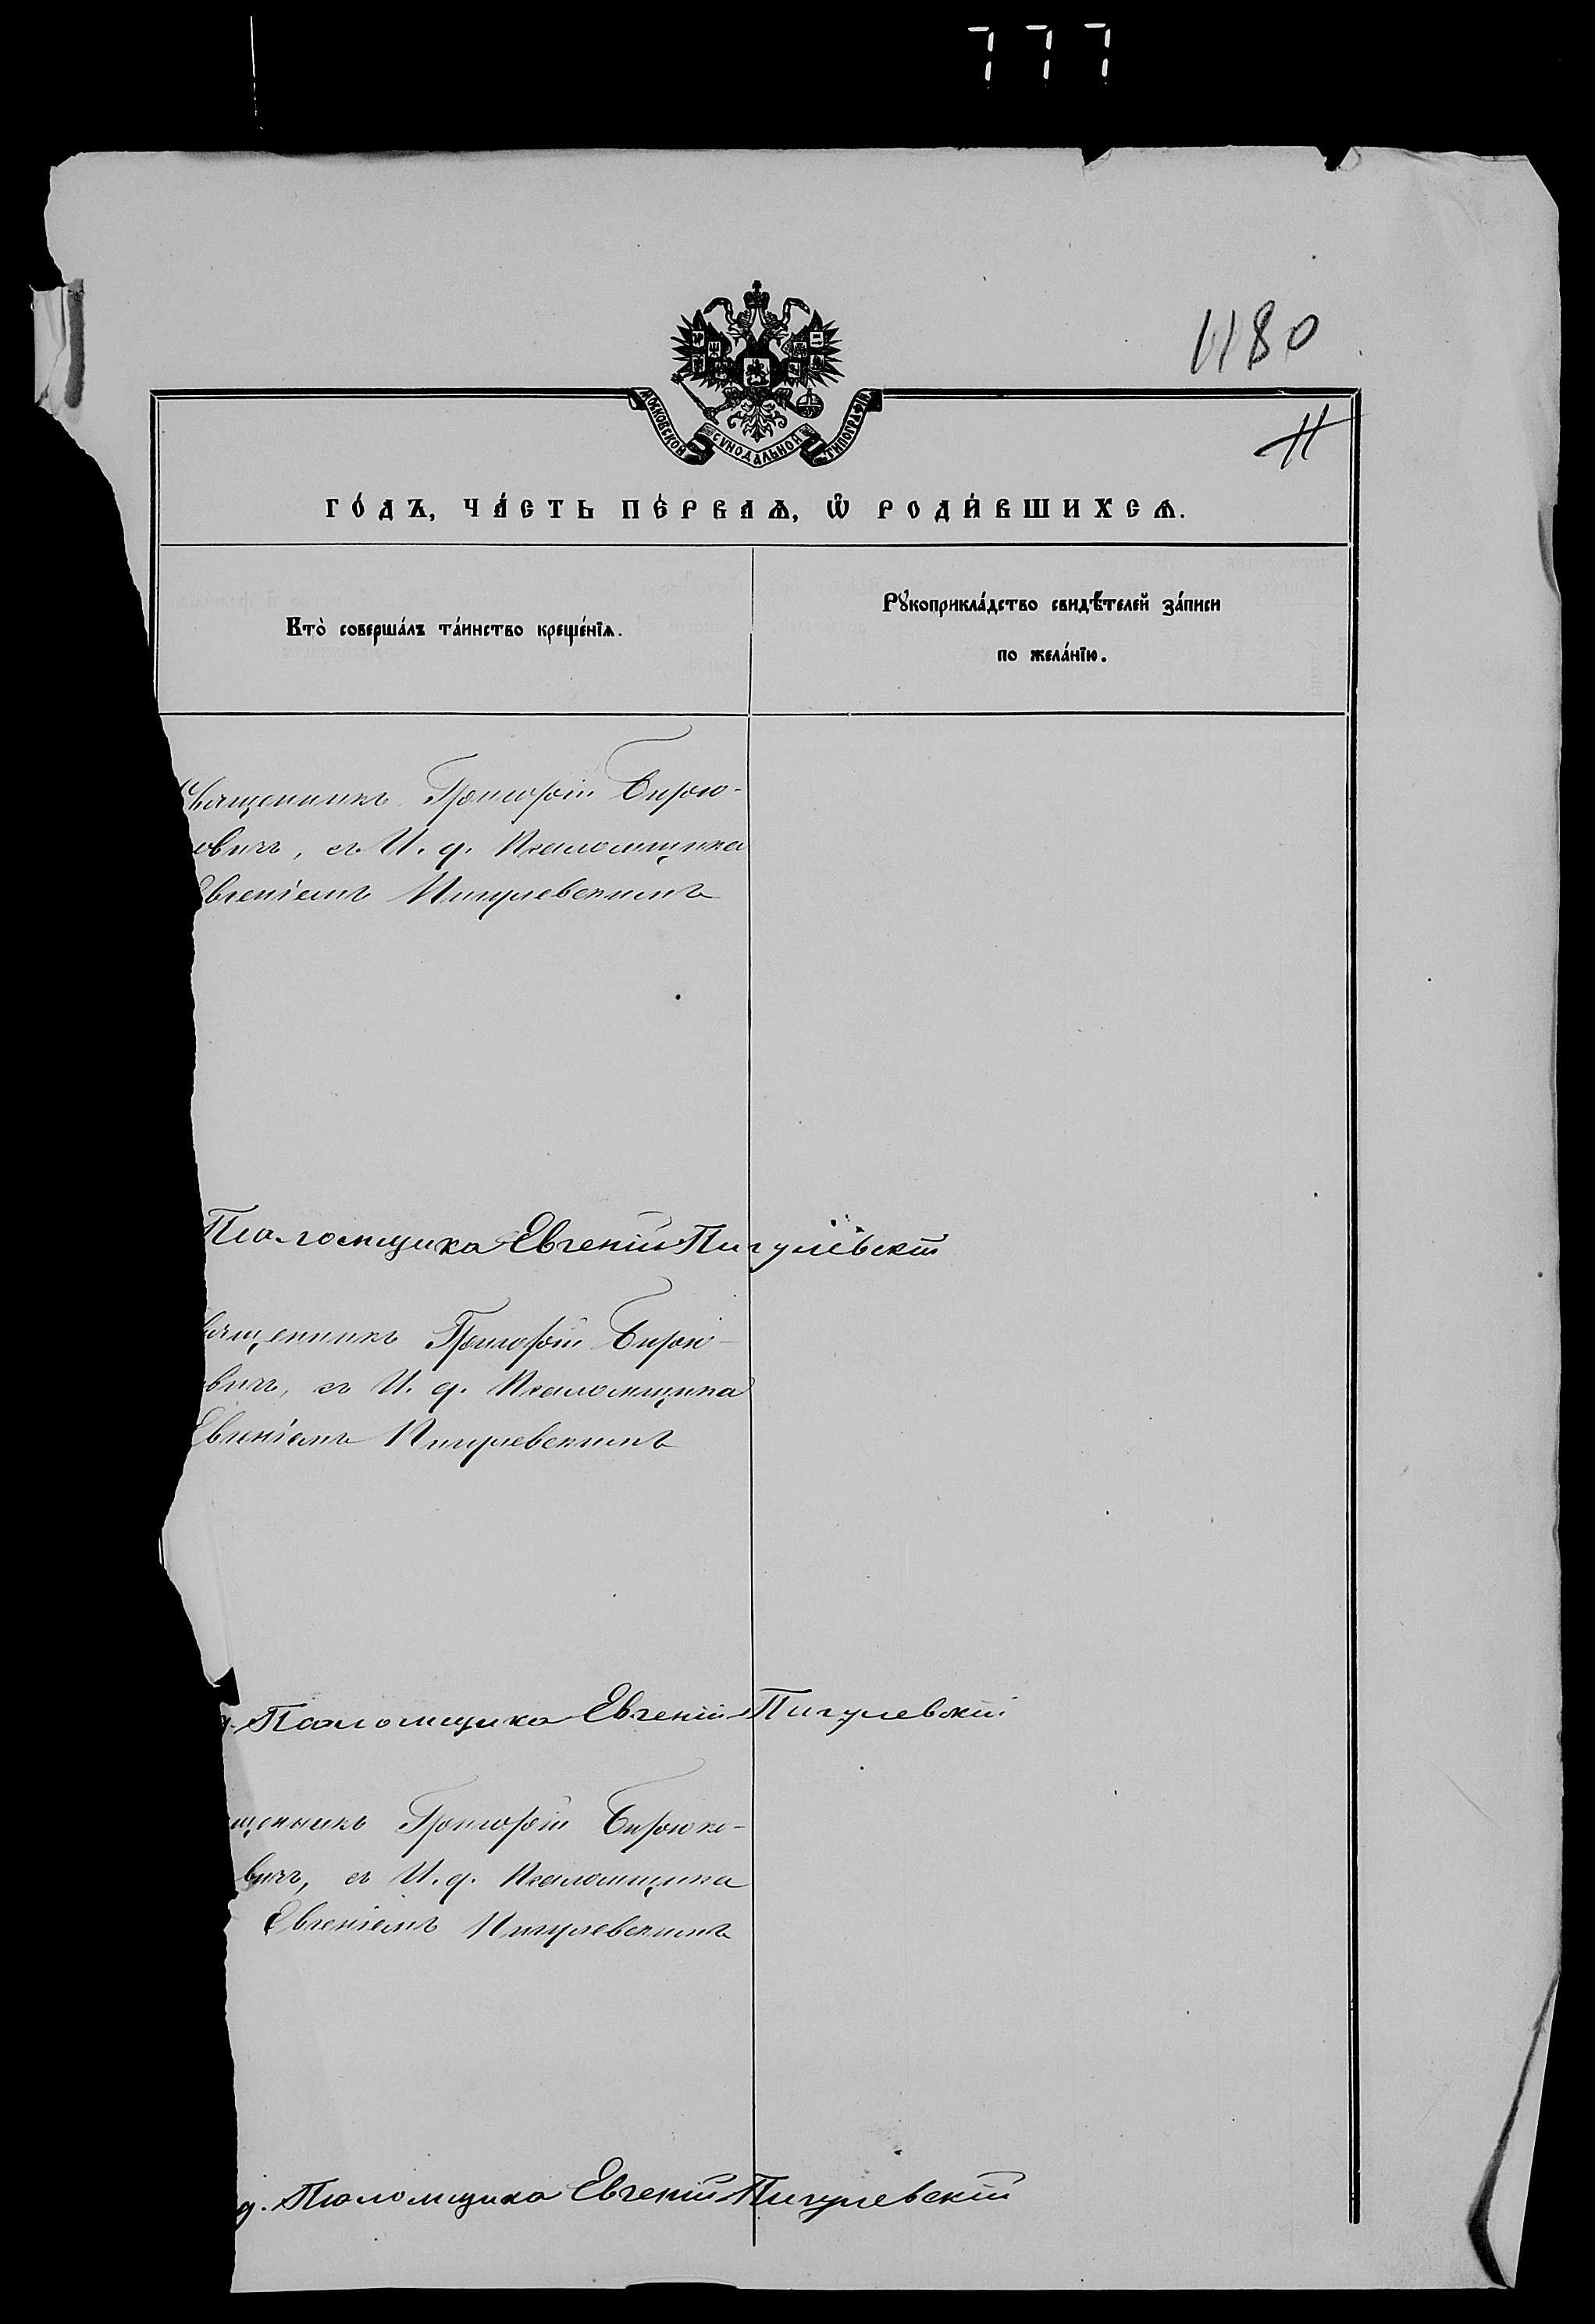 777
1180
11
МОСКОВСКОЙ СѴНОДАЛЬНОЙ ТИПОГРАФІИ
ГО́ДЪ, ЧА́СТЬ ПЕ́РВАѦ, Ѽ РОДИ́ВШИХСѦ.
Кто̀ соверша́лъ та́инство креще́нїѧ.
Рꙋкоприкла́дство свидѣ́телей за́писи
по жела́нїю.
Священникъ Григорій Бирю-
ковичъ, съ И. д. Псаломщика
Евгеніемъ Пигулевскимъ
Псаломщика Евгеній Пигулевскій
ященникъ Григорій Бирю-
вичъ, съ И. д. Псаломщика
Евгеніемъ Пигулевскимъ
д. Псаломщика Евгеній Пигулевскій
щенникъ Григорій Бирюко-
вичъ, съ И. д. Псаломщика
Евгеніемъ Пигулевскимъ
д. Псаломщика Евгеній Пигулевскій